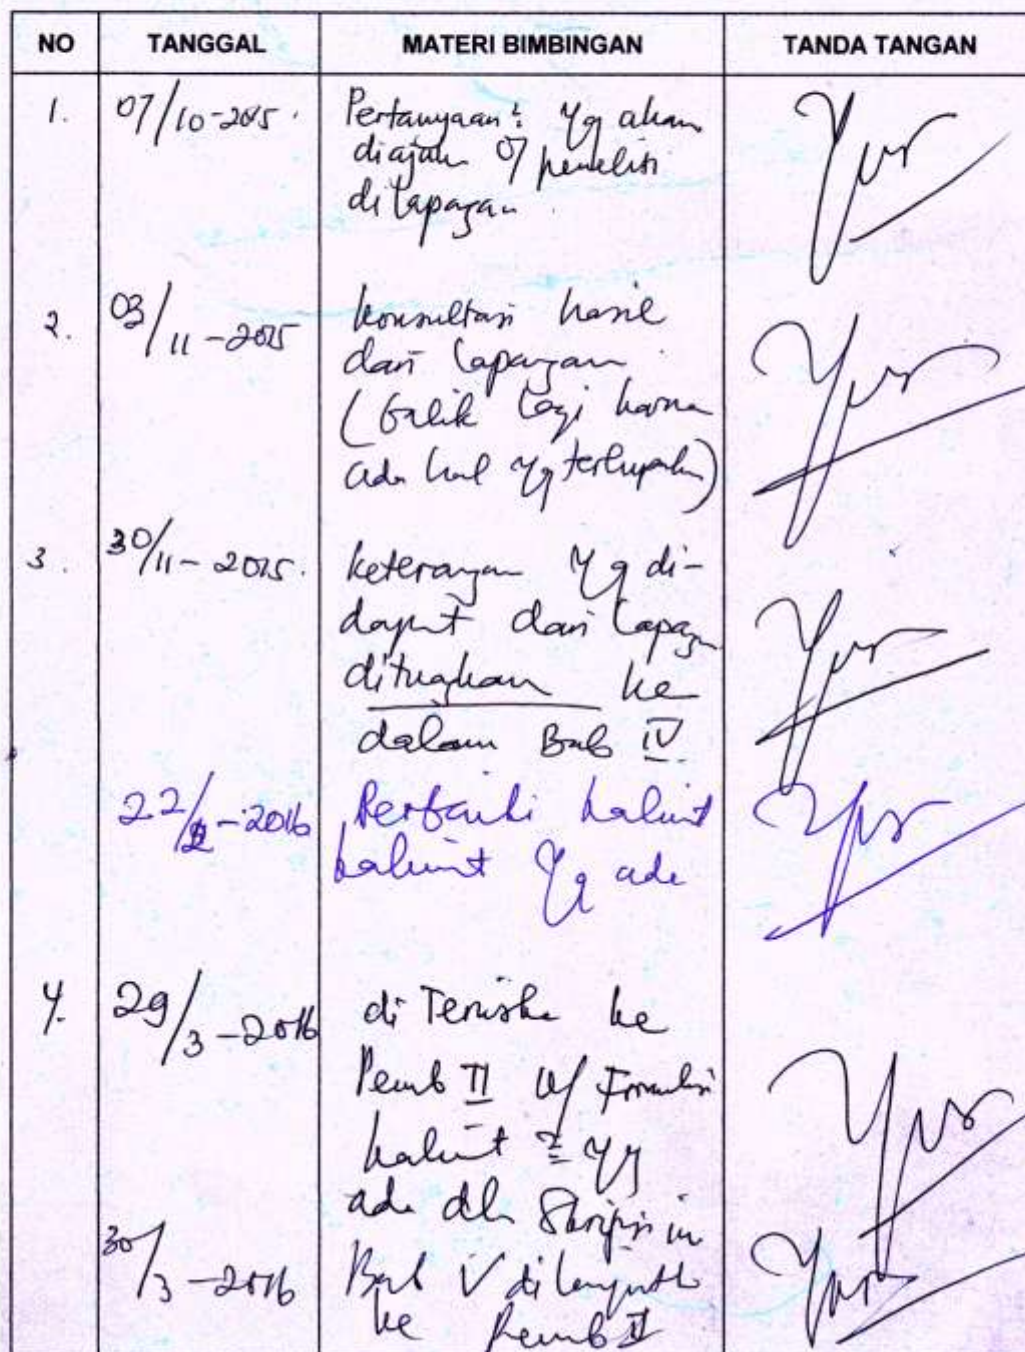 NO TANGGAL MATERI BIMBINGAN TANDA TANGAN
1. 07/10-2015. Pertanyaan² yg akan
diajukan o/ peneliti
dilapagan.
2. 03/11-2015 konsultasi hasil
dari lapangan
(Balik lagi karna
ada hal yg terlupakan)
3. 30/11-2015. keterangan yg di-
dapat dari lapagn
dituagkan ke
dalam Bab IV
22/2-2016 Perbaiki kalimt
kalimt yg ada
4. 29/3-2016 di Teruska ke
Pemb II u/
kalimt² yg
ada dlm Skripsi ini
30/3-2016 Bab V dilanjutk
ke Pemb II